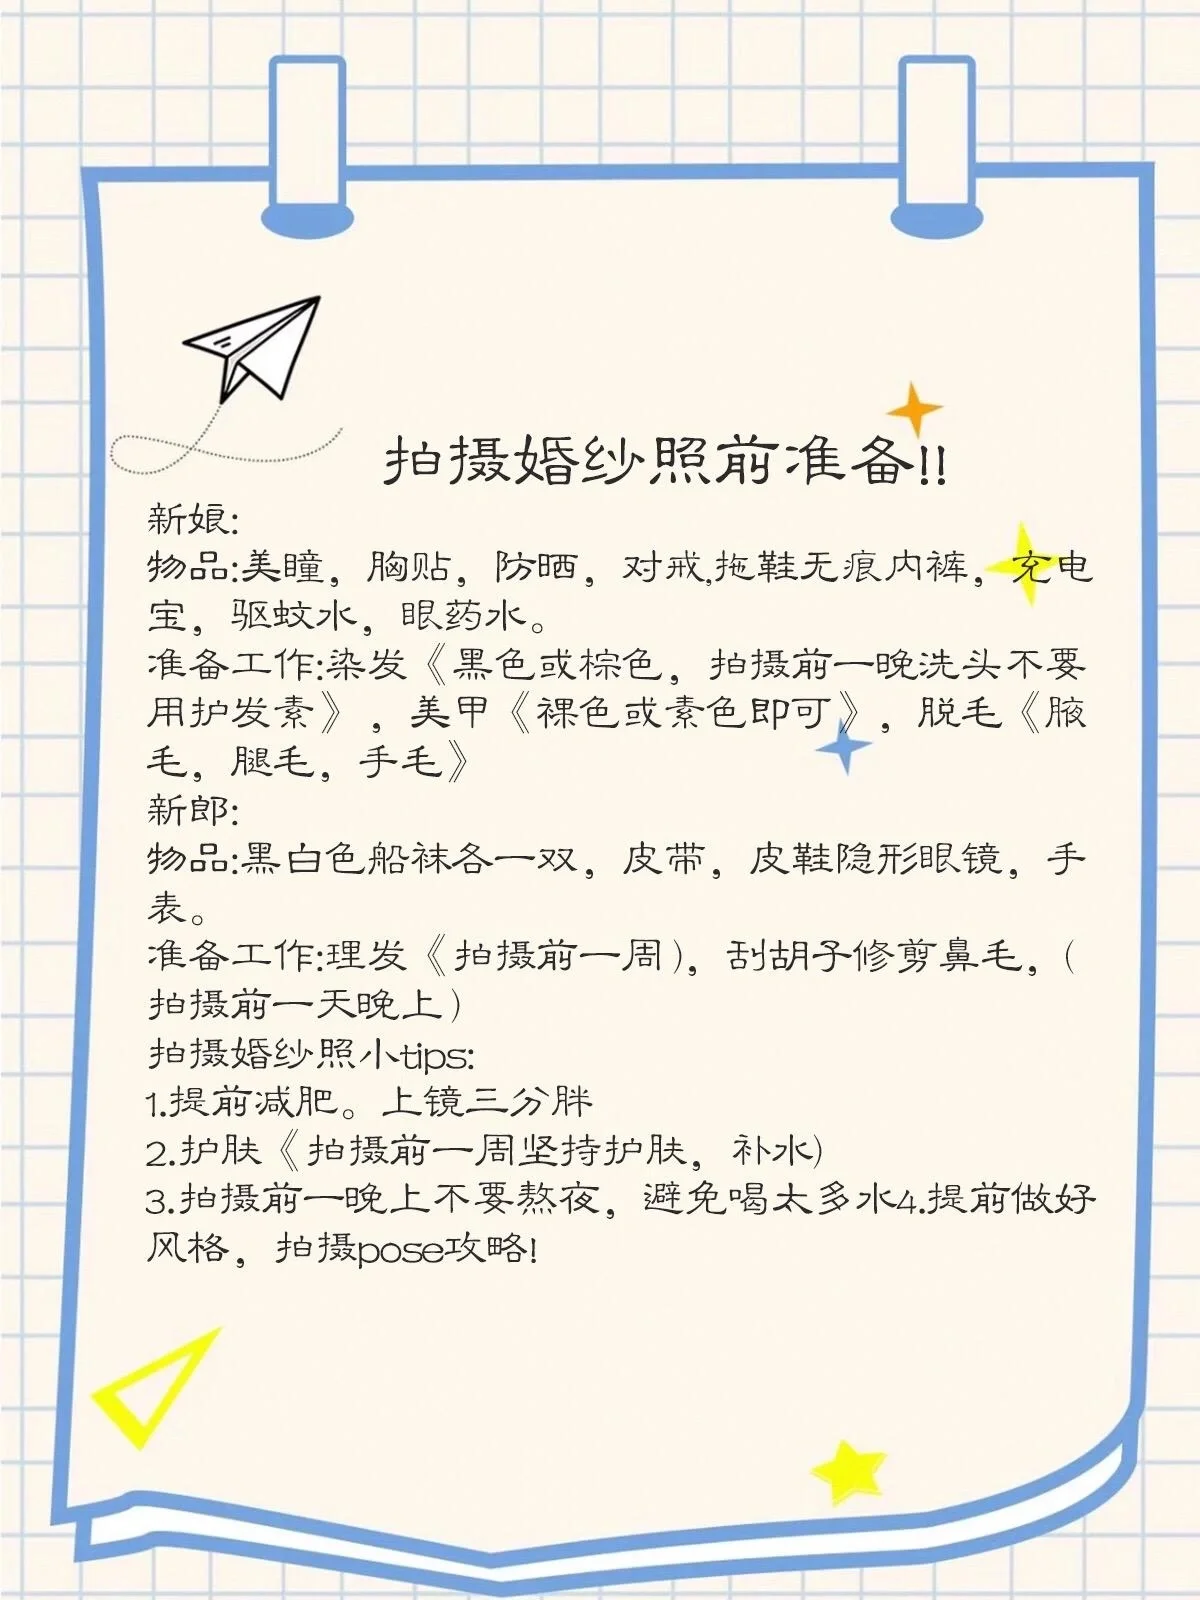 拍摄婚纱照前准备!!
新娘:
物品:美瞳，胸贴，防晒，对戒,拖鞋无痕内裤，充电
宝，驱蚊水，眼药水。
准备工作:染发《黑色或棕色，拍摄前一晚洗头不要
用护发素》，美甲《裸色或素色即可》，脱毛《腋
毛，腿毛，手毛》
新郎:
物品:黑白色船袜各一双，皮带，皮鞋隐形眼镜，手
表。
准备工作:理发《拍摄前一周)，刮胡子修剪鼻毛，(
拍摄前一天晚上)
拍摄婚纱照小tips:
1.提前减肥。上镜三分胖
2.护肤《拍摄前一周坚持护肤，补水)
3.拍摄前一晚上不要熬夜，避免喝太多水4.提前做好
风格，拍摄pose攻略!